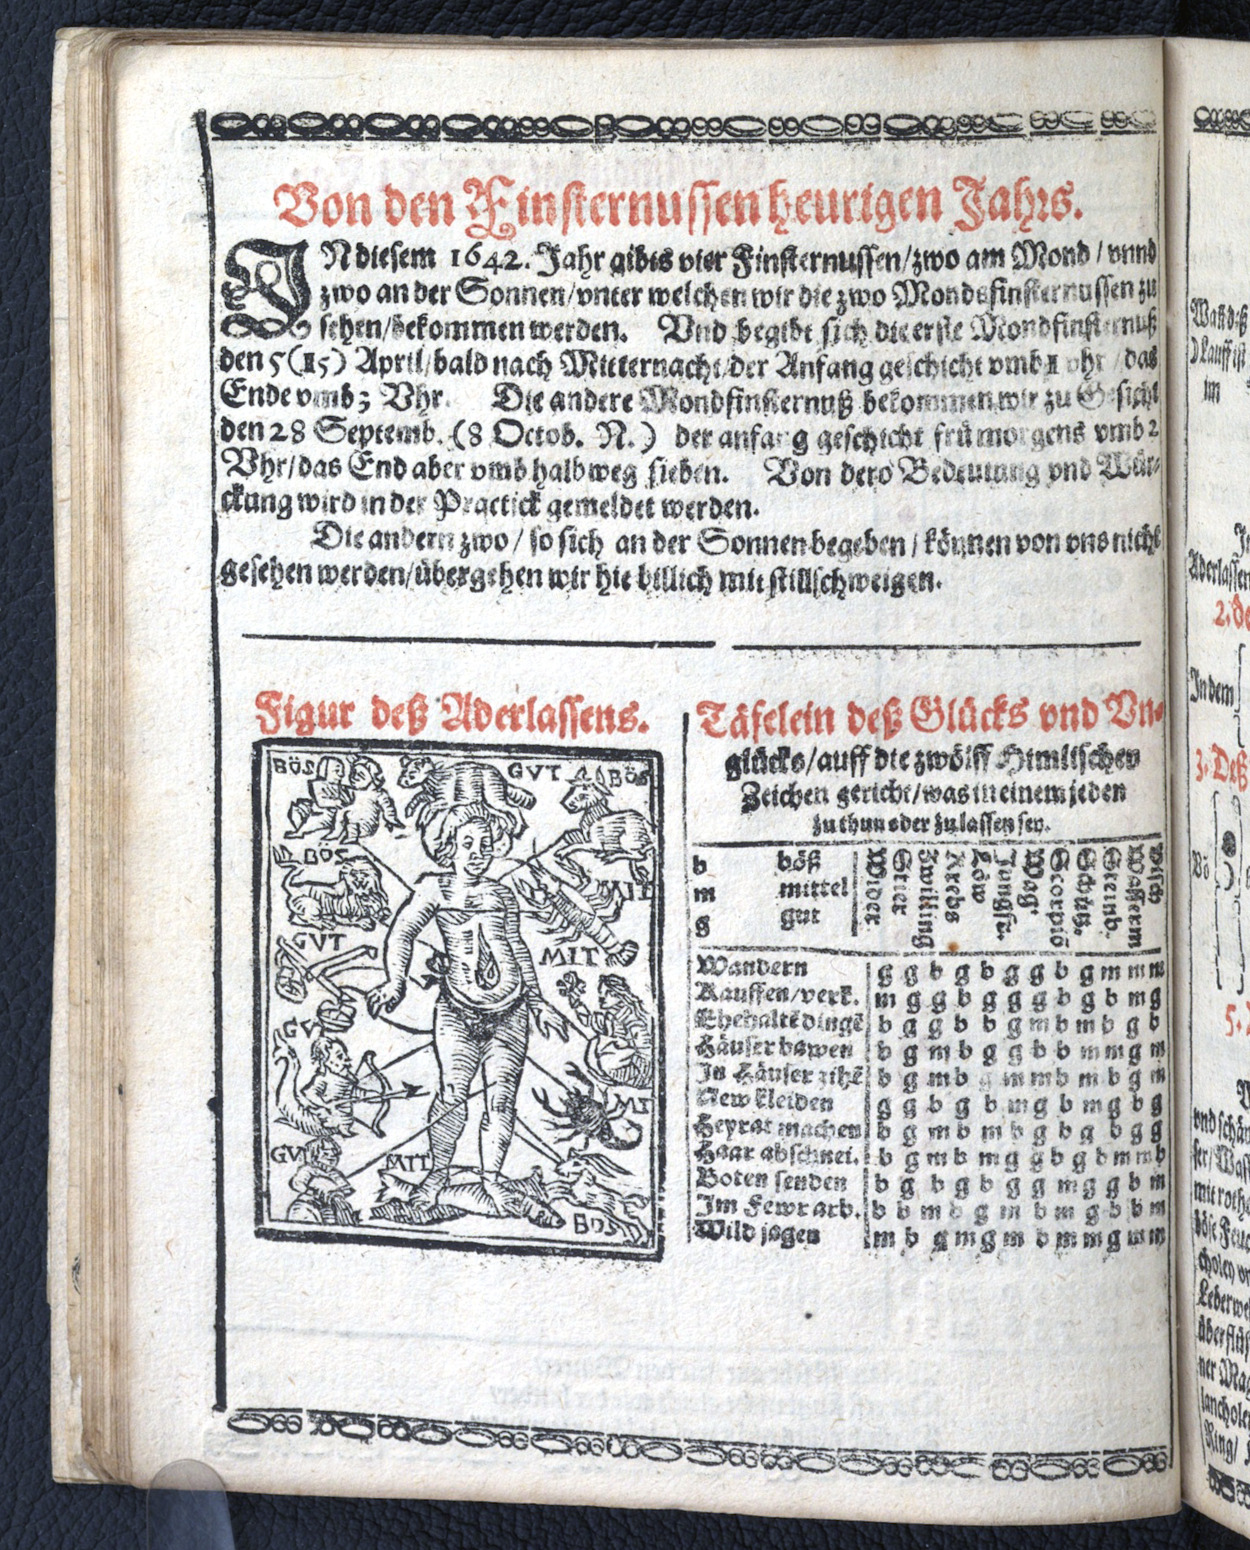 Von den Finsternussen heurigen Jahrs.
IN diesem 1642. Jahr gibts vier Finsternussen/zwo am Mond / vnnd
zwo an der Sonnen/vnter welchen wir die zwo Mondsfinsternussen zu
sehen/bekommen werden. Vnd begibt sich die erste Mondfinsternuß
den 5 (15) April/bald nach Mitternacht/der Anfang geschicht vmb 1 vhr / das
Ende vmb 3 Vhr. Die andere Mondfinsternuß bekommen wir zu Gesicht
den 28 Septemb. (8 Octob. N.) der anfang geschicht frü morgens vmb 2
Vhr/das End aber vmb halbweg sieben. Von dero Bedeutung vnd Wür-
ckung wird in der Practick gemeldet werden.
Die andern zwo / so sich an der Sonnen begeben / können von vns nicht
gesehen werden/übergehen wir hie billich mit stillschweigen.
Figur deß Aderlassens.
BÖS GVT BÖS
BOS MIT
GVT MIT
GV
MI
GV MIT
BOS
Täfelein deß Glücks vnd Vn-
glücks/auff die zwölff Himlischen
Zeichen gericht/was in einem jeden
zu thun oder zu lassen sey.
b böß
m mittel
g gut
Wider Stier Zwilling Krebs Löw Jungf. Wag. Scorpiõ Schütz. Steinb. Wasserm Visch.
Wandern g g b g b g g b g m m m
Kauffen/verk. m g g b g g g b g b m g
Ehehaltẽ dingẽ b g g b b g m b m b g b
Häuser bawen b g m b g g b b m m g m
In Häuser zihẽ b g m b g m m b m b g m
New kleiden g g b g b m g b m g b g
Heyrat machen b g m b m b g b g b g g
Haar abschnei. b g m b m g g b g b m m b
Boten senden b g b g b g g m g g b m
Im Fewr arb. b b m b g m b m g b b m
Wild jagen m b g m g m b m m g m m